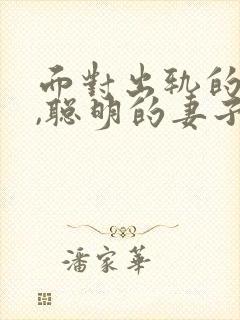 而對出軌的
,聰明的妻子
潘家華